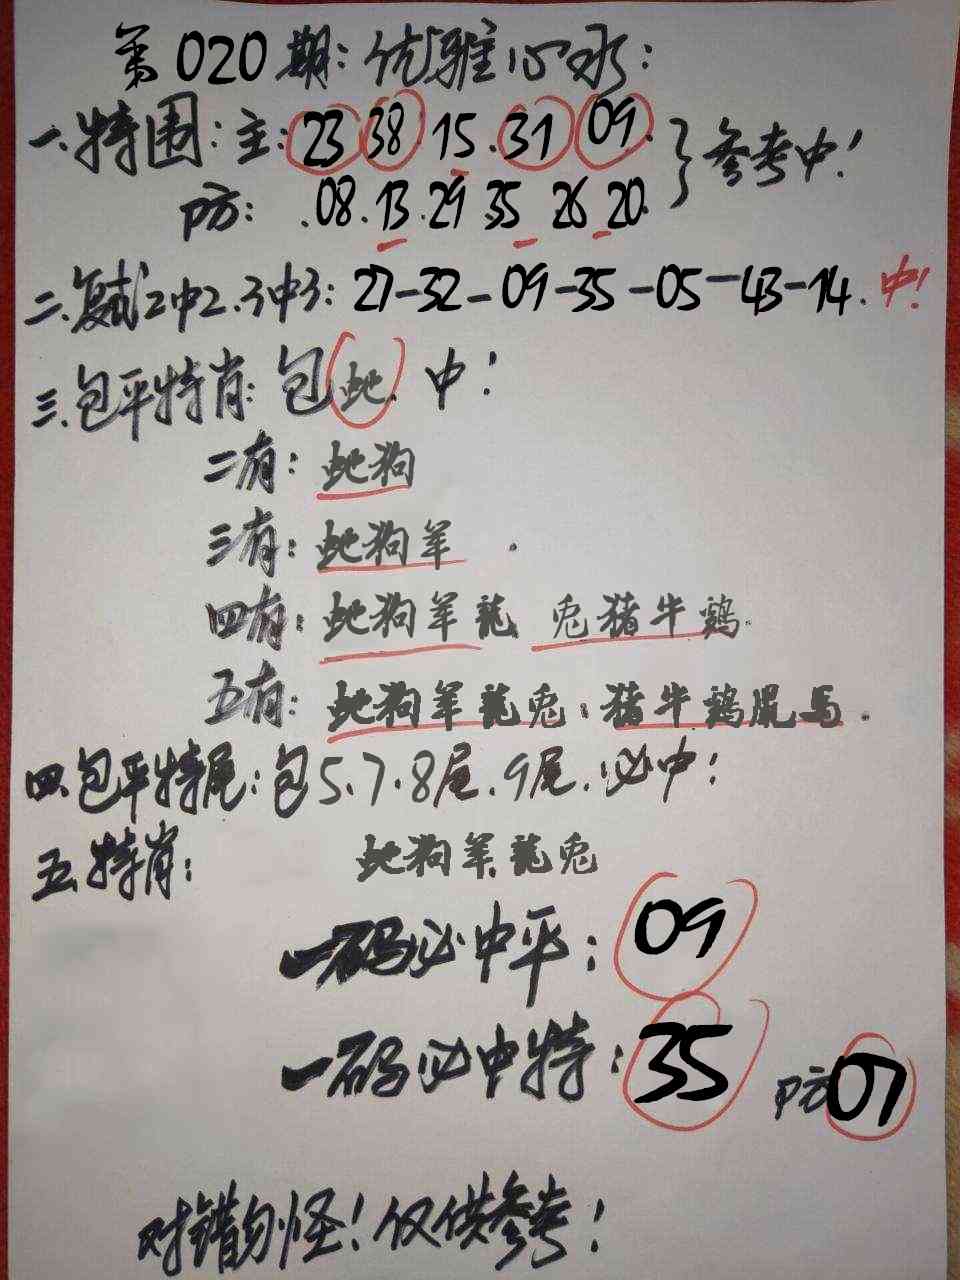 第020期:优雅心水:
一.特围:主:23 38.15.31 09. }参考中!
防:.08.13.29.35 26 20.
二.复试2中2.3中3:27-32-09-35-05-43-14.中!
三.包平特肖:包蛇.中!
二有:蛇狗
三有:蛇狗羊.
四有:蛇狗羊龍 兔猪牛鷄.
五有:蛇狗羊龍兔:猪牛鷄鼠馬.
四.包平特尾:包5.7.8尾.9尾.必中!
五.特肖: 蛇狗羊.龍兔
一码必中平:09
一码必中特:35 防07
对错勿怪!仅供参考!